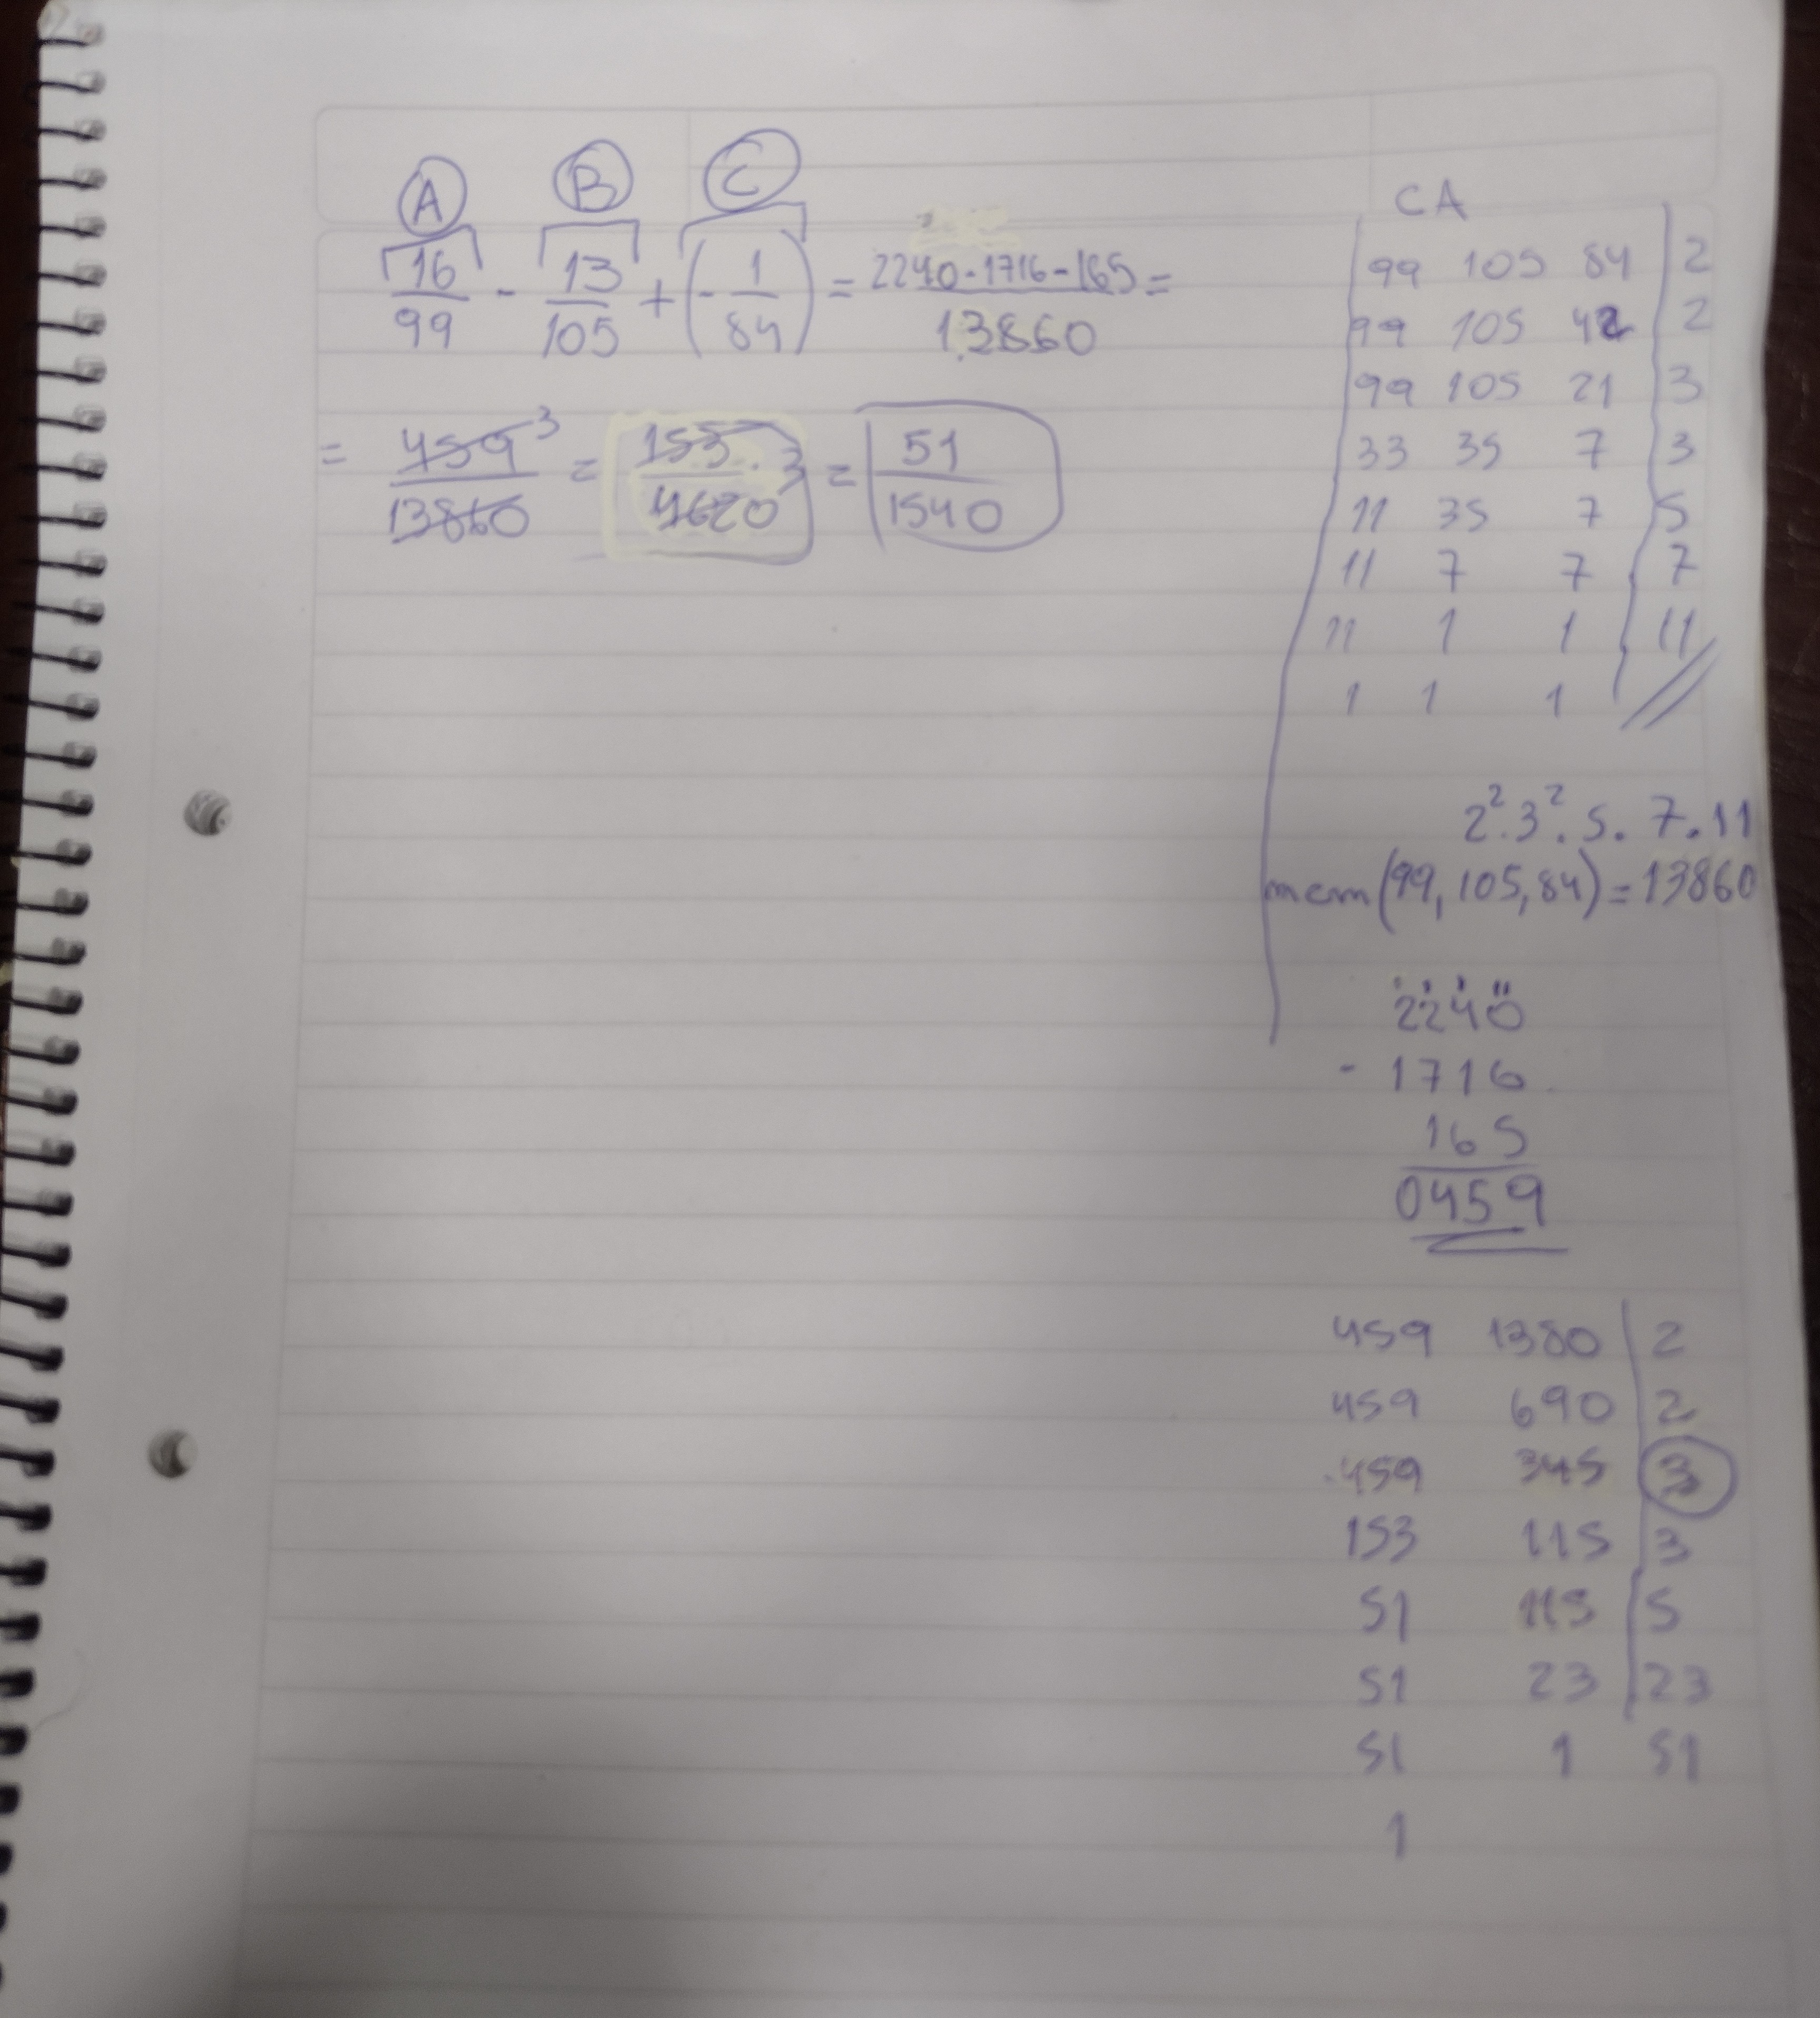 A B C
16/99 - 13/105 + (-1/84) = (2240-1716-165)/13860 =
= 459/13860 3 = 153/4620 . 3 = 51/1540
CA
99 105 84 | 2
99 105 42 | 2
99 105 21 | 3
33 35 7 | 3
11 35 7 | 5
11 7 7 | 7
11 1 1 | 11
1 1 1
2².3².5.7.11
mcm(99,105,84)=13860
2240
- 1716
165
0459
459 1380 | 2
459 690 | 2
459 345 | 3
153 115 | 3
51 115 | 5
51 23 | 23
51 1 51
1